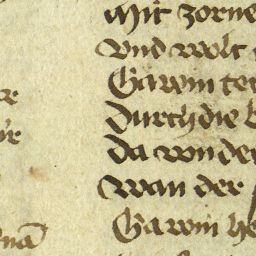 Mit zorne
vnd wolt
Gawin tet
Durch die
Da von der
Wan der
Gawin he